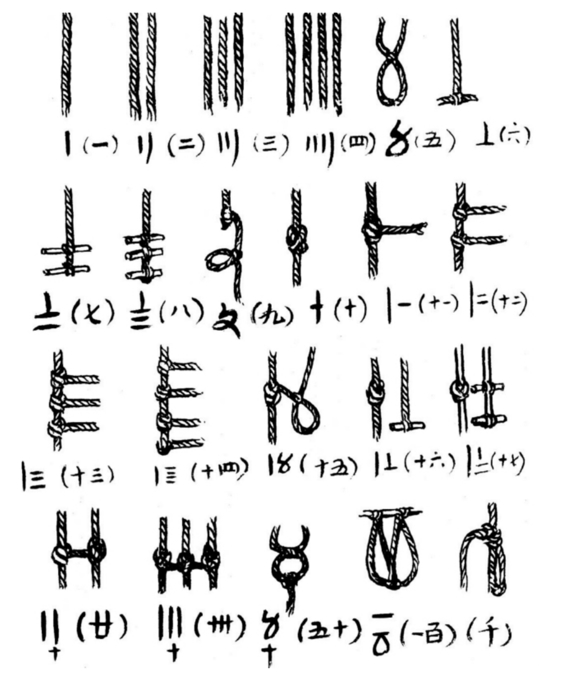 〡(一) 〢(二) 〣(三) 〤(四) 〥(五) 〦(六)
〧(七) 〨(八) 〩(九) 十(十) 〡一(十一) 〡二(十二)
〡三(十三) (十四) 〡〥(十五) 〡〦(十六) 〡〧(十七)
(廿) (卅) (五十) (一百) (千)